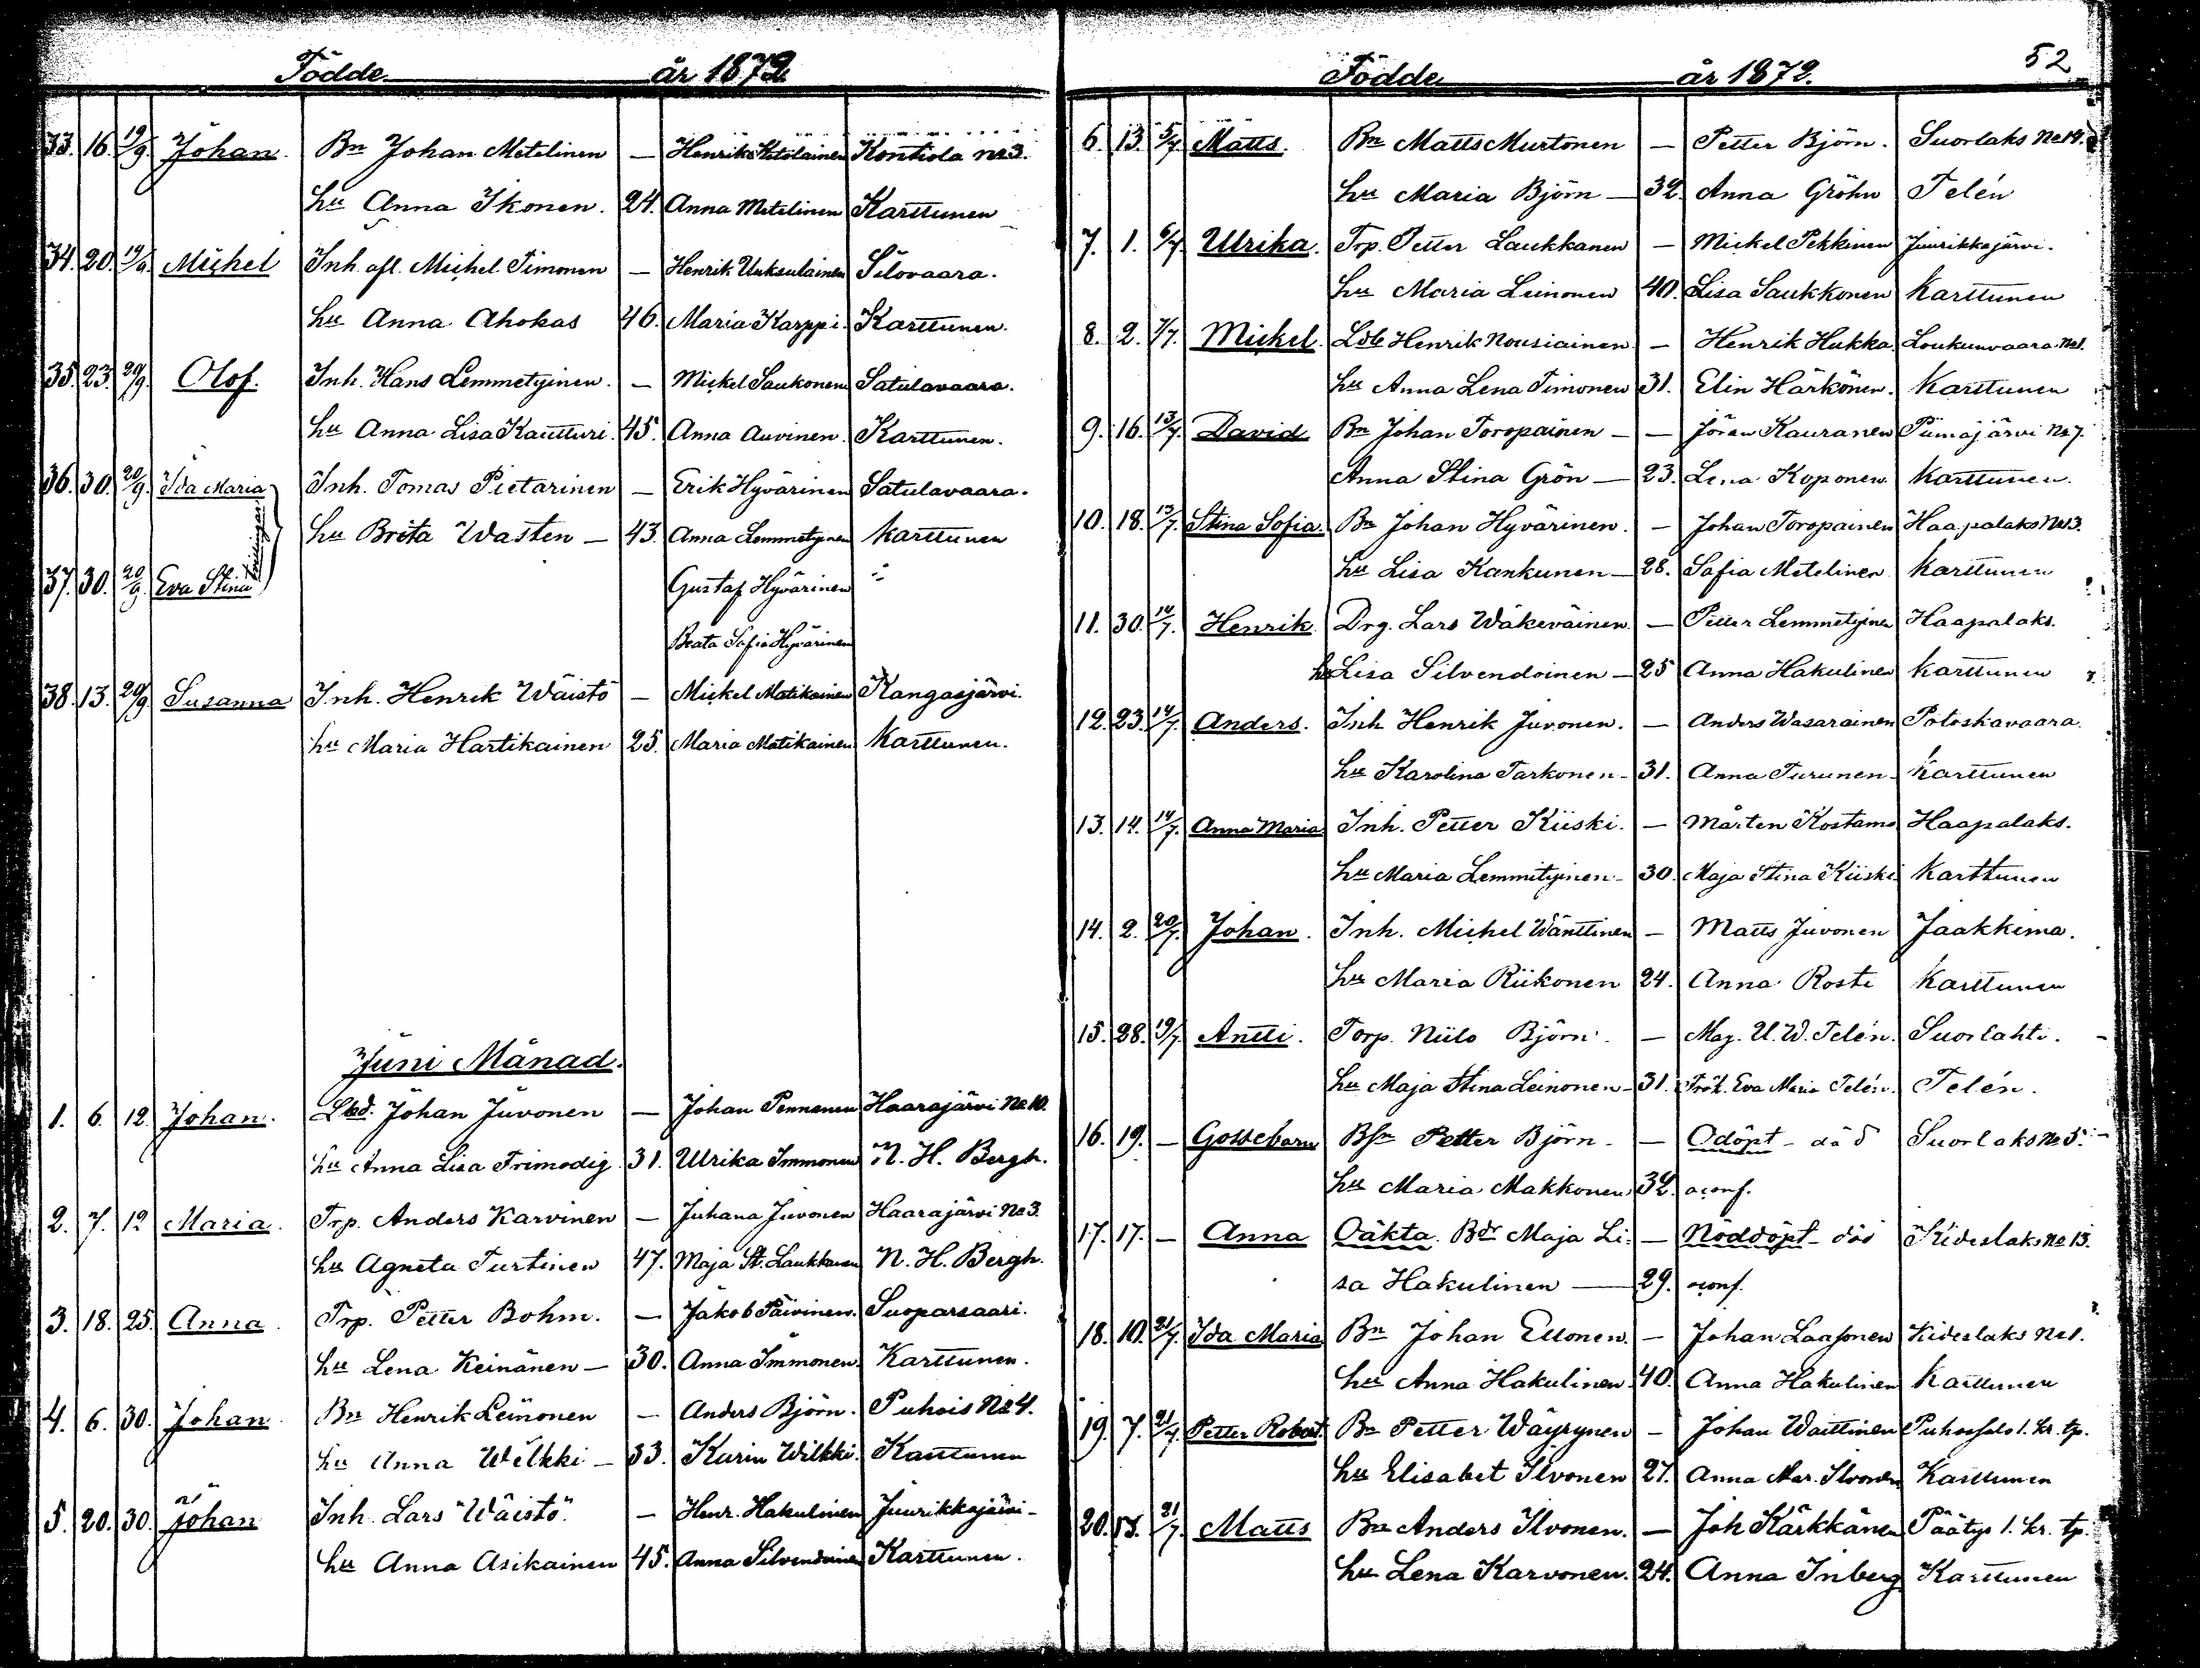 Födde år 1872
33. 16. 19/9. Johan. Bn Johan Metelinen — Henrik Ketolainen Kontiola No 3.
hu Anna Ikonen. 24. Anna Metelinen Karttunen
34. 20. 19/9. Michel Inh. afl. Michel Timonen — Henrik Uuksulainen Silovaara.
hu Anna Ahokas 46. Maria Karppi. Karttunen.
35. 23. 20/9. Olof. Inh. Hans Lemmetyinen. — Mickel Saukonen Satulavaara.
hu Anna Lisa Kautturi. 45. Anna Auvinen. Karttunen.
36. 30. 20/9. Ida Maria Inh. Tomas Pietarinen — Erik Hyvärinen Satulavaara.
hu Brita Wasten — 43. Anna Lemmetyinen Karttunen
37. 30. 20/9. Eva Stina Gustaf Hyvärinen
Beata Sofia Hyvärinen
38. 13. 20/9. Susanna Inh. Henrik Wäistö — Mickel Matikainen Kangasjärvi.
hu Maria Hartikainen 25. Maria Matikainen Karttunen.
Juni Månad.
1. 6. 12. Johan. Lbd. Johan Juvonen — Johan Pennanen Haarajärvi No 10.
hu Anna Lisa Frimodig 31. Ulrika Immonen N. H. Bergh.
2. 7. 12 Maria. Trp. Anders Karvinen — Juhana Juvonen Haarajärvi No 3.
hu Agneta Turtinen 47. Maja St. Laukkanen N. H. Bergh.
3. 18. 25. Anna Trp. Petter Bohm. — Jakob Päivinen. Suoparsaari.
hu Lena Keinänen — 30. Anna Immonen. Karttunen.
4. 6. 30. Johan Bn Henrik Leinonen — Anders Björn. Puhois No 4.
hu Anna Wilkki — 33. Karin Wilkki. Karttunen
5. 20. 30. Johan Inh. Lars Wäistö. — Henr. Hakulinen Juurikkajärvi —
hu Anna Asikainen 45. Anna Silvendoinen Karttunen.
Födde år 1872. 52
6. 13. 5/7. Matts. Bn Matts Murtonen — Petter Björn. Suorlaks No 19.
hu Maria Björn — 32. Anna Gröhn Telén
7. 1. 6/7. Ulrika. Trp. Petter Laukkanen — Mickel Pekkinen Juurikkajärvi.
hu Maria Leinonen 40. Lisa Saukkonen Karttunen
8. 2. 7/7. Mickel. Henrik Nousiainen. — Henrik Hukka. Loukunvaara No 1.
hu Anna Lena Timonen 31. Elin Härkönen. Karttunen
9. 16. 13/7. David Bn Johan Toropainen — — Jöran Kauranen Piimäjärvi No 7.
Anna Stina Grön — 23. Lena Koponen. Karttunen.
10. 18. 13/7. Stina Sofia. Bn Johan Hyvärinen. — Johan Toropainen Haapalaks No 13.
hu Lisa Kankunen — 28. Sofia Metelinen Karttunen
11. 30. 14/7. Henrik Drg. Lars Wäkeväinen. — Petter Lemmetyinen Haapalaks.
hu Lisa Silvendoinen — 25 Anna Hakulinen Karttunen
12. 23. 14/7. Anders. Inh Henrik Juvonen. — Anders Wasarainen Potoskavaara.
hu Karolina Tarkonen — 31. Anna Turunen — Karttunen
13. 14. 14/7. Anna Maria Inh. Petter Kiiski. — Mårten Kostamo Haapalaks.
hu Maria Lemmityinen — 30. Maja Stina Kiiski Karttunen
14. 2. 20/7. Johan. Inh. Michel Wänttinen — Matts Juvonen Jaakkima.
hu Maria Riikonen 24. Anna Rosti Karttunen
15. 28. 19/7. Antti. Torp. Niilo Björn. — Mag. U. W. Telén. Suorlahti.
hu Maja Stina Leinonen — 31. Frök. Eva Maria Telén. Telén.
16. 19. — Gossebarn Bsn Petter Björn — — Odöpt — död Suorlaks No 5.
hu Maria Makkonen 32.
17. 17. — Anna Oäkta. Bdr Maja Li- — Nöddöpt — död Kideslaks No 13.
sa Hakulinen — 29.
18. 10. 21/7. Ida Maria Bn Johan Ellonen. — Johan Laasonen Kideslaks No 1.
hu Anna Hakulinen 40. Anna Hakulinen Karttunen
19. 7. 21/7. Petter Robert. Bn Petter Wäyrynen — Johan Waittinen 1. kr. tp.
hu Elisabet Ilvonen 27. Anna Mar. Ilvonen Karttunen
20. 21/7. Matts Bn Anders Ilvonen. — Joh Kärkkänen Päätys 1. kr. tp.
hu Lena Karvonen. 24. Anna Inberg Karttunen